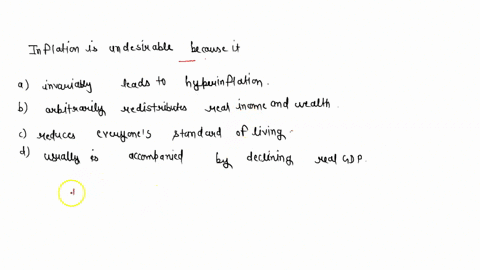 Inflation is undesirable because it
a) invariably leads to hyperinflation.
b) arbitrarily redistributes real income and wealth.
c) reduces everyone's standard of living.
d) usually is accompanied by declining real GDP.